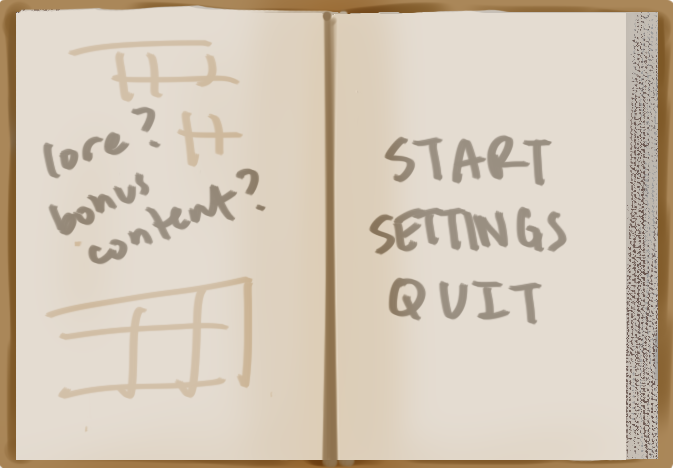 lore?
bonus
content?
START
SETTINGS
QUIT